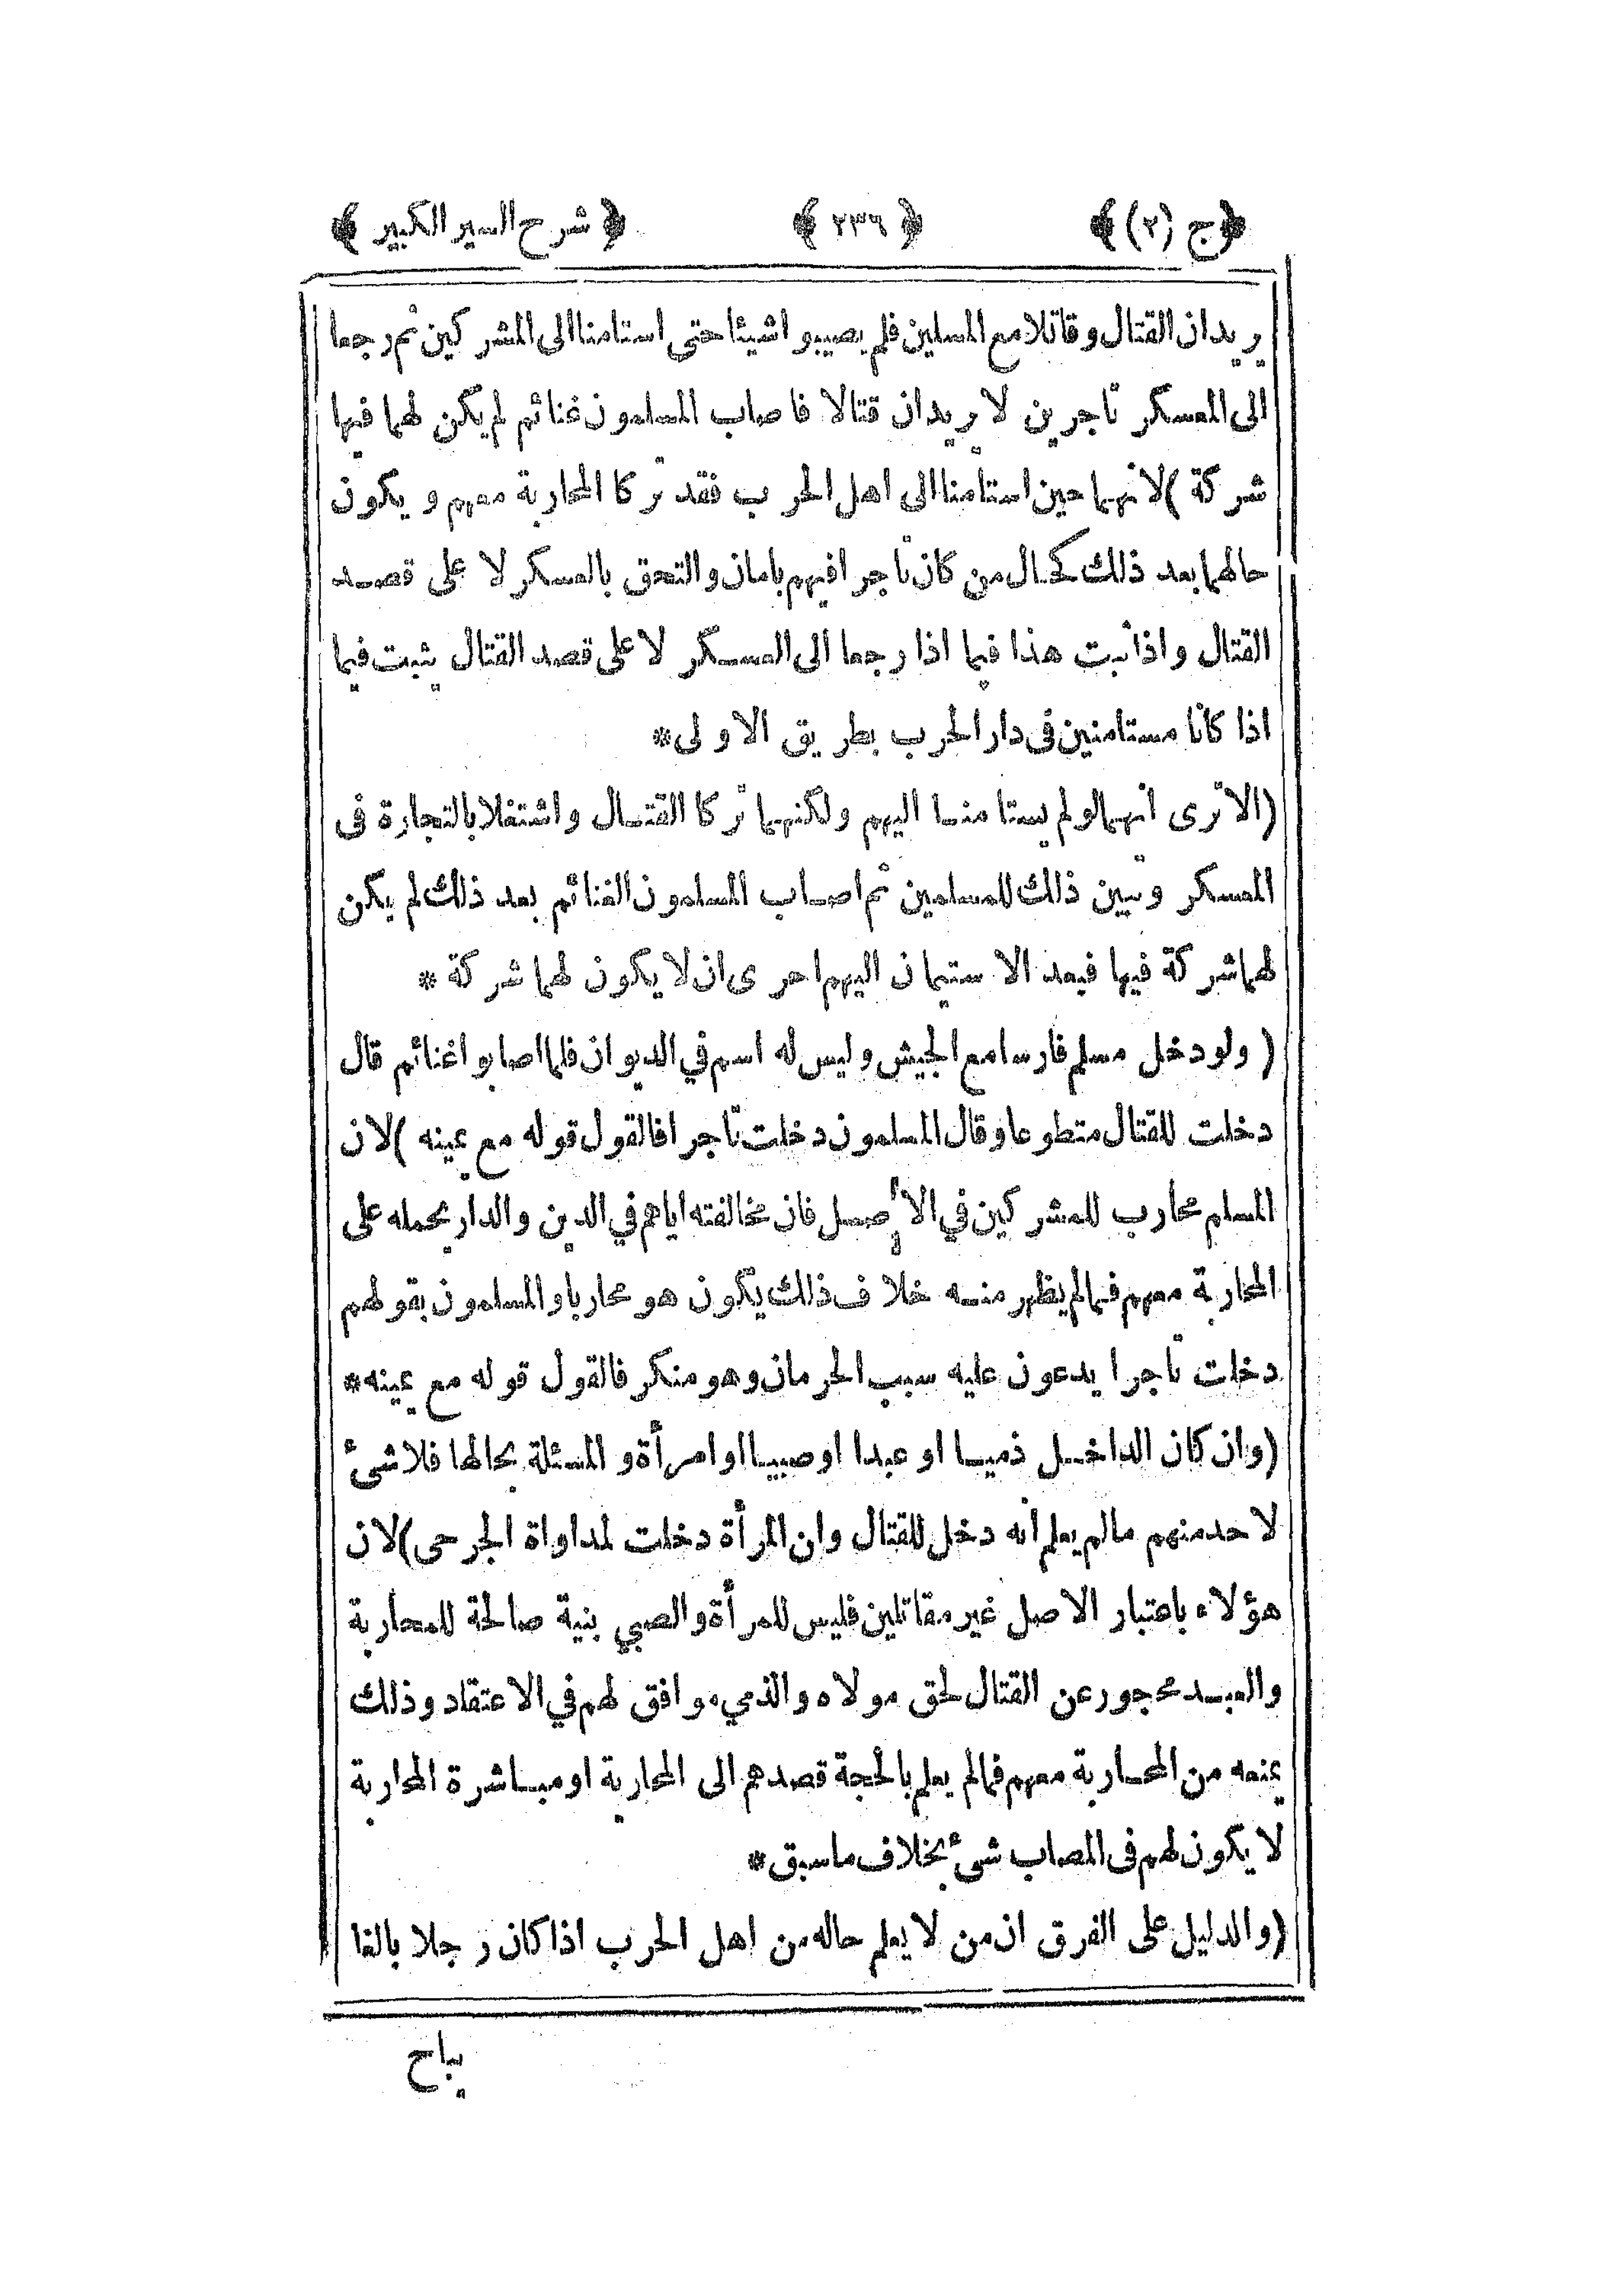 ﴿ج (٢)﴾ ﴿٢٣٦﴾ ﴿شرح السير الكبير﴾
يريدان القتال وقاتلا مع المسلمين فلم يصيبوا شيئا حتى استامنا الى المشركين ثم رجعا
الى العسكر تاجرين لا يريدان قتالا فاصاب المسلمون غنائم لم يكن لهما فيها
شركة ) لانهما حين استأمنا الى اهل الحرب فقد تركا المحاربة معهم ويكون
حالهما بعد ذلك كحال من كان تاجرا فيهم بامان والتحق بالعسكر لا على قصد
القتال واذا ثبت هذا فيما اذا رجعا الى العسكر لا على قصد القتال يثبت فيما
اذا كانا مستامنين فى دار الحرب بطريق الاولى *
(الا ترى انهما لو لم يستامنا اليهم ولكنهما تركا القتال واشتغلا بالتجارة فى
العسكر وتبين ذلك للمسلمين ثم اصاب المسلمون الغنائم بعد ذلك لم يكن
لهما شركة فيها فبعد الاستيمان اليهم احرى ان لا يكون لهما شركة *
( ولو دخل مسلم فارسا مع الجيش وليس له اسم في الديوان فلما اصابوا غنائم قال
دخلت للقتال متطوعا وقال المسلمون دخلت تاجرا فالقول قوله مع يمينه ) لان
المسلم محارب للمشركين في الأصل فان مخالفته اياهم في الدين والدار يحمله على
المحاربة معهم فما لم يظهر منه خلاف ذلك يكون هو محاربا والمسلمون بقولهم
دخلت تاجرا يدعون عليه سبب الحرمان وهو منكر فالقول قوله مع يمينه *
(وان كان الداخل ذميا او عبدا او صبيا او امرأة والمسئلة بحالها فلا شئ
لاحد منهم ما لم يعلم أنه دخل للقتال وان المرأة دخلت لمداواة الجرحى ) لان
هؤلاء باعتبار الاصل غير مقاتلين فليس للمرأة والصبي بنية صالحة للمحاربة
والعبد محجور عن القتال لحق مولاه والذمي موافق لهم في الاعتقاد وذلك
يمنعه من المحاربة معهم فما لم يعلم بالحجة قصدهم الى المحاربة او مباشرة المحاربة
لا يكون لهم فى المصاب شئ بخلاف ما سبق *
(والدليل على الفرق ان من لا يعلم حاله من اهل الحرب اذا كان رجلا بالغا
يباح